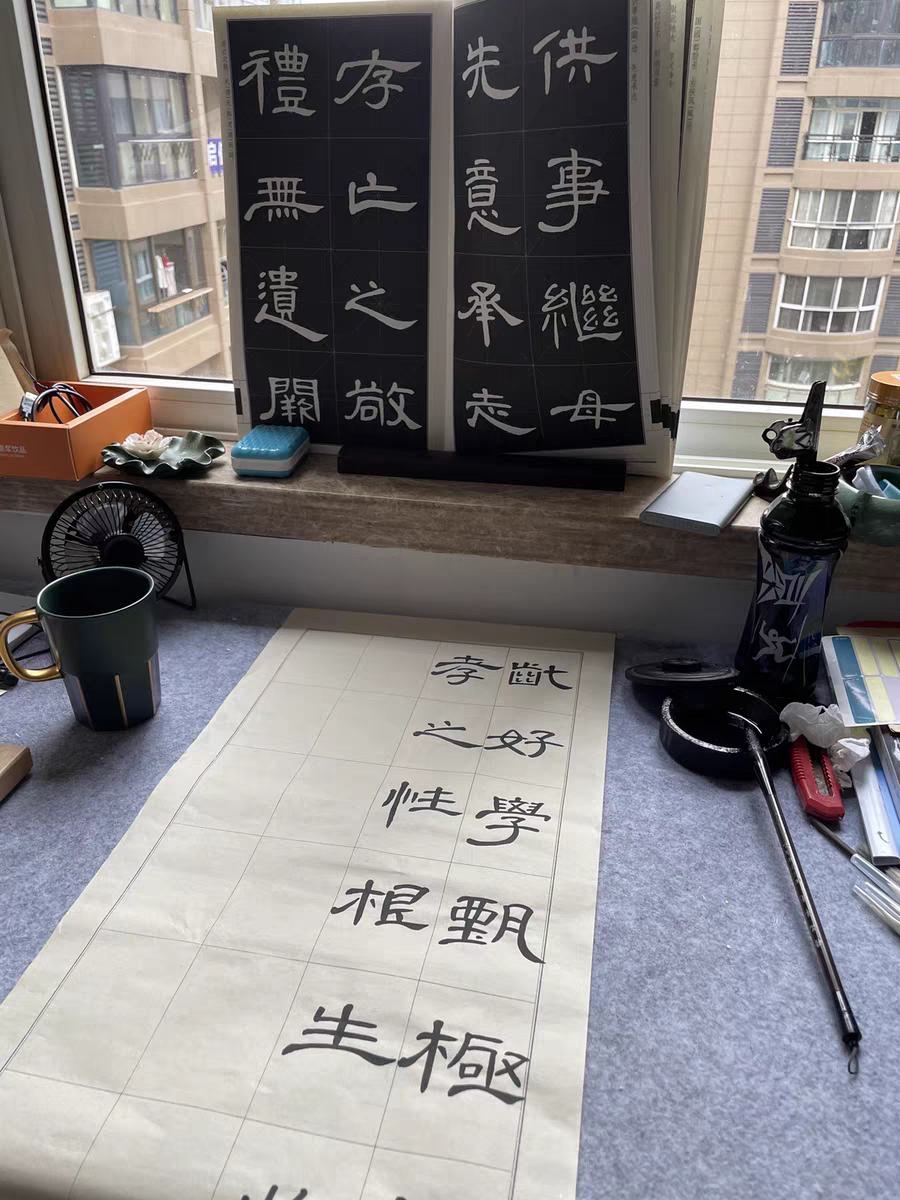 供事繼母
先意承志
存亡之敬
禮無遺闕
齔好學甄極
孝之性根生